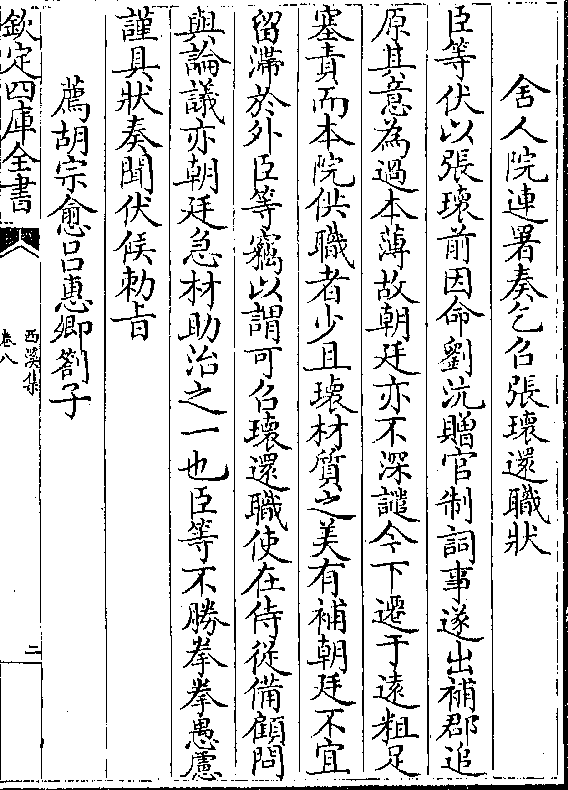 舍人院連署奏乞召張瓌還職狀
臣等伏以張瓌前因命劉沆贈官制詞事遂出補郡追
原其意為過本薄故朝廷亦不深譴今下遷于遠粗足
塞責而本院供職者少且瓌材質之美有補朝廷不宜
留滯於外臣等竊以謂可召瓌還職使在侍從備顧問
與論議亦朝廷急材助治之一也臣等不勝拳拳愚慮
謹具狀奏聞伏候勅旨
薦胡宗愈呂惠卿劄子
欽定四庫全書
西溪集
卷八
二